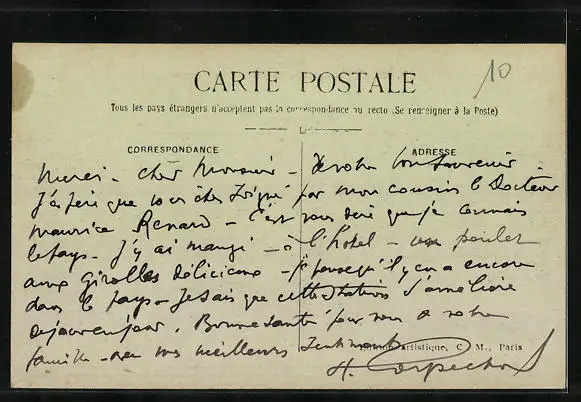 CARTE POSTALE
10
Tous les pays étrangers n'acceptent pas la correspondance au recto (Se renseigner à la Poste)
CORRESPONDANCE
ADRESSE
Merci - cher Monsieur - de votre bon souvenir -
que vous êtes soigné par mon cousin le Docteur
Maurice Renard - C'est vous dire que je connais
le pays - J'y ai mangé - à l'hotel - un poulet
aux girolles délicieux - Je pense qu'il y en a encore
dans le pays - Je sais que cette station s'améliore
de jour en jour. Bonne santé pour vous & votre
famille - avec mes meilleurs sentiments
Edition Artistique, C. M., Paris
H.